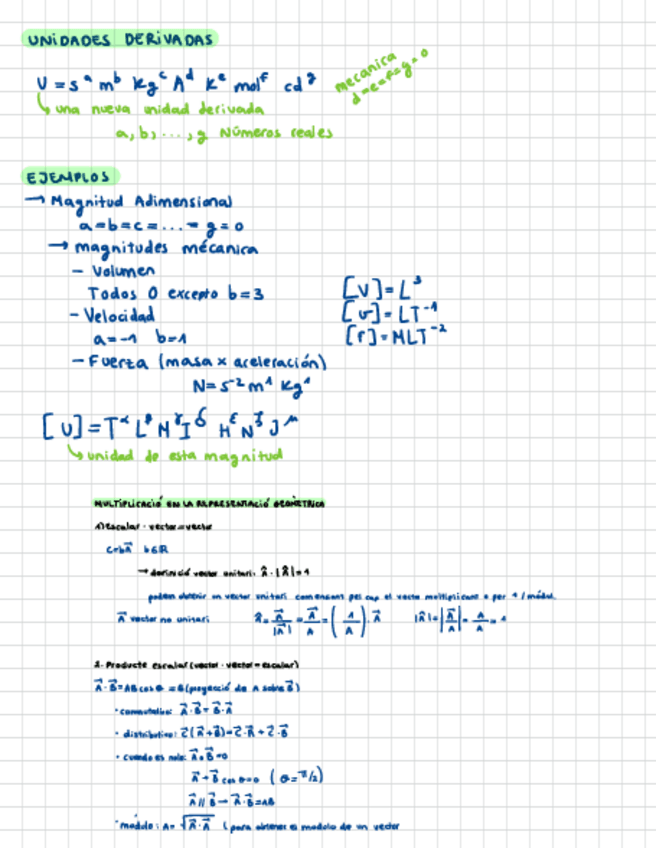 UNIDADES DERIVADAS
U = s^a m^b kg^c A^d K^e mol^f cd^g
mecanica
d=e=f=g=0
una nueva unidad derivada
a, b, ..., g Números reales
EJEMPLOS
→ Magnitud Adimensional
a=b=c=...=g=0
→ magnitudes mécanica
- Volumen
Todos 0 excepto b=3
[V]=L³
- Velocidad
[v]=LT⁻¹
a=-1 b=1
[F]=MLT⁻²
- Fuerza (masa x aceleración)
N=s⁻² m¹ kg¹
[U]=T^α L^β M^γ I^δ H^ε N^ξ J^μ
unidad de esta magnitud
MULTIPLICACIÓ EN LA REPRESENTACIÓ GEOMÈTRICA
1) escalar · vector = vector
C=bA⃗ b∈R
→ definició vector unitari: Â · |Â|=1
podem obtenir un vector unitari començant pel cap el vector multiplicant x per 1/mòdul.
A⃗ vector no unitari Â = A⃗/|A⃗| = A⃗/A = (1/A)·A⃗ |Â|=|A⃗/A|= A/A = 1
2. Producte escalar (vector · vector = escalar)
A⃗·B⃗=AB cos θ = B(proyecció de A sobre B⃗)
· conmutativa: A⃗·B⃗=B⃗·A⃗
· distributiva: C⃗(A⃗+B⃗)=C⃗·A⃗+C⃗·B⃗
· cuando es nulo: A⃗·B⃗=0
A⃗·B⃗ cos θ=0 (θ=π/2)
A⃗//B⃗ → A⃗·B⃗=AB
· modulo: A=√A⃗·A⃗ (para obtener el modulo de un vector